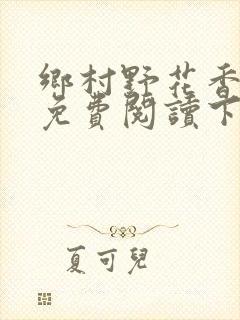 鄉村野花香
免費閱讀下
夏可兒